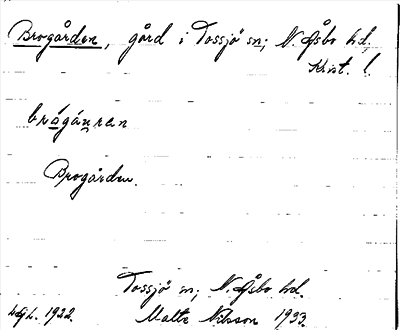 Brogården, gård i Tossjö sn; N. Åsbo hd.
Krist. l.
brógánran
Brogården.
Tossjö sn; N. Åsbo hd.
1922. Malte Nilsson 1933.